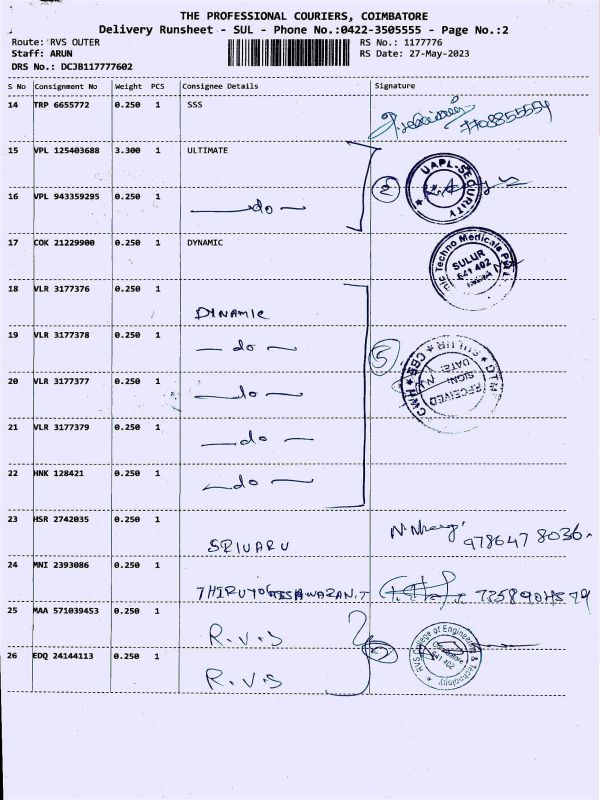 THE PROFESSIONAL COURIERS, COIMBATORE
Delivery Runsheet - SUL - Phone No.:0422-3505555 - Page No.:2
Route: RVS OUTER RS No.: 1177776
Staff: ARUN RS Date: 27-May-2023
DRS No.: DCJB117777602
S No Consignment No Weight PCS Consignee Details Signature
14 TRP 6655772 0.250 1 SSS
15 VPL 125403688 3.300 1 ULTIMATE
UAPL-SECURITY
2
16 VPL 943359295 0.250 1 do
17 COK 21229900 0.250 1 DYNAMIC
Techno Medicals
SULUR
641 402
18 VLR 3177376 0.250 1 DYNAMIC
19 VLR 3177378 0.250 1 do
5
CWH ★ CBE ★ SULUR ★ DTM
DATE:
SIGN:
RECEIVED
20 VLR 3177377 0.250 1 do
21 VLR 3177379 0.250 1 do
22 HNK 128421 0.250 1 do
23 HSR 2742035 0.250 1 SRIVARU
9786478036
24 MNI 2393086 0.250 1
25 MAA 571039453 0.250 1 R.V.S
RVS College of Engineering & Technology
Coimbatore
641 402
26 EDQ 24144113 0.250 1 R.V.S